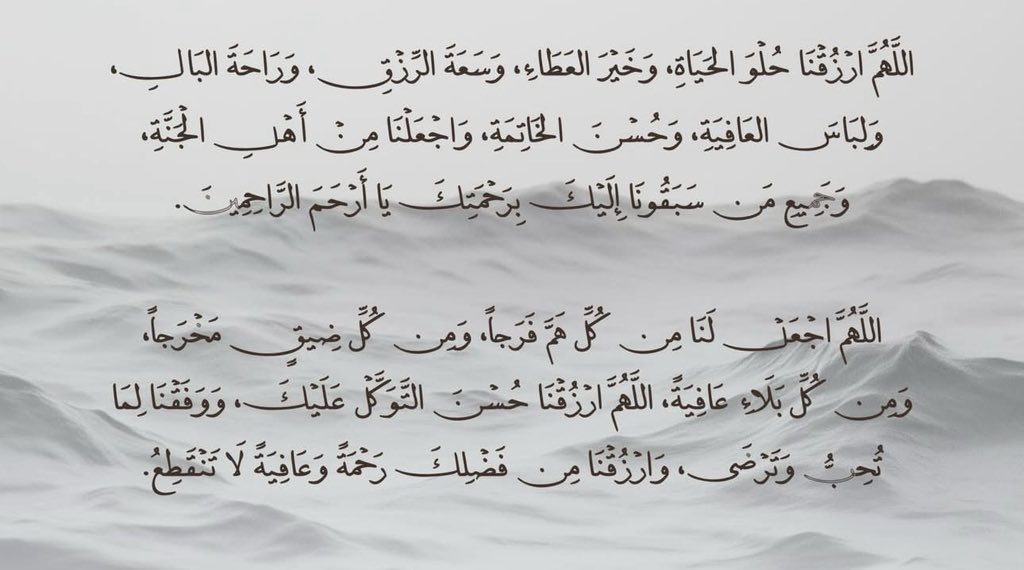 اللَّهُمَّ ارْزُقْنَا حُلْوَ الحَيَاةِ، وَخَيْرَ العَطَاءِ، وَسَعَةَ الرِّزْقِ، وَرَاحَةَ البَالِ،
وَلِبَاسَ العَافِيَةِ، وَحُسْنَ الخَاتِمَةِ، وَاجْعَلْنَا مِنْ أَهْلِ الْجَنَّةِ،
وَجَمِيعِ مَن سَبَقُونَا إِلَيْكَ بِرَحْمَتِكَ يَا أَرْحَمَ الرَّاحِمِينَ.
اللَّهُمَّ اجْعَلْ لَنَا مِن كُلِّ هَمَّ فَرَجاً، وَمِن كُلِّ ضِيقٍ مَخْرَجاً،
وَمِن كُلِّ بَلَاءٍ عَافِيَةً، اللَّهُمَّ ارْزُقْنَا حُسْنَ التَّوَكّلَ عَلَيْكَ، وَوَفَقْنَا لِمَا
تُحِبُّ وَتَرْضَى، وَارْزُقْنَا مِن فَضْلِكَ رَحْمَةً وَعَافِيَةً لَا تَنْقَطِعُ.